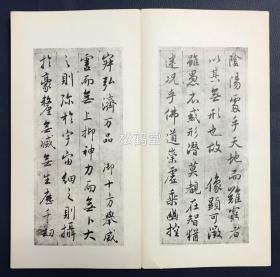 陰陽處乎天地而難窮者
以其無形也故 像顯可徵
雖愚不惑形潛莫覩在智猶
迷況乎佛道崇虛乘幽控
寂弘濟萬品 御十方舉威
靈而無上抑神力而無下大
之則彌於宇宙細之則攝
於豪釐無滅無生歷千劫